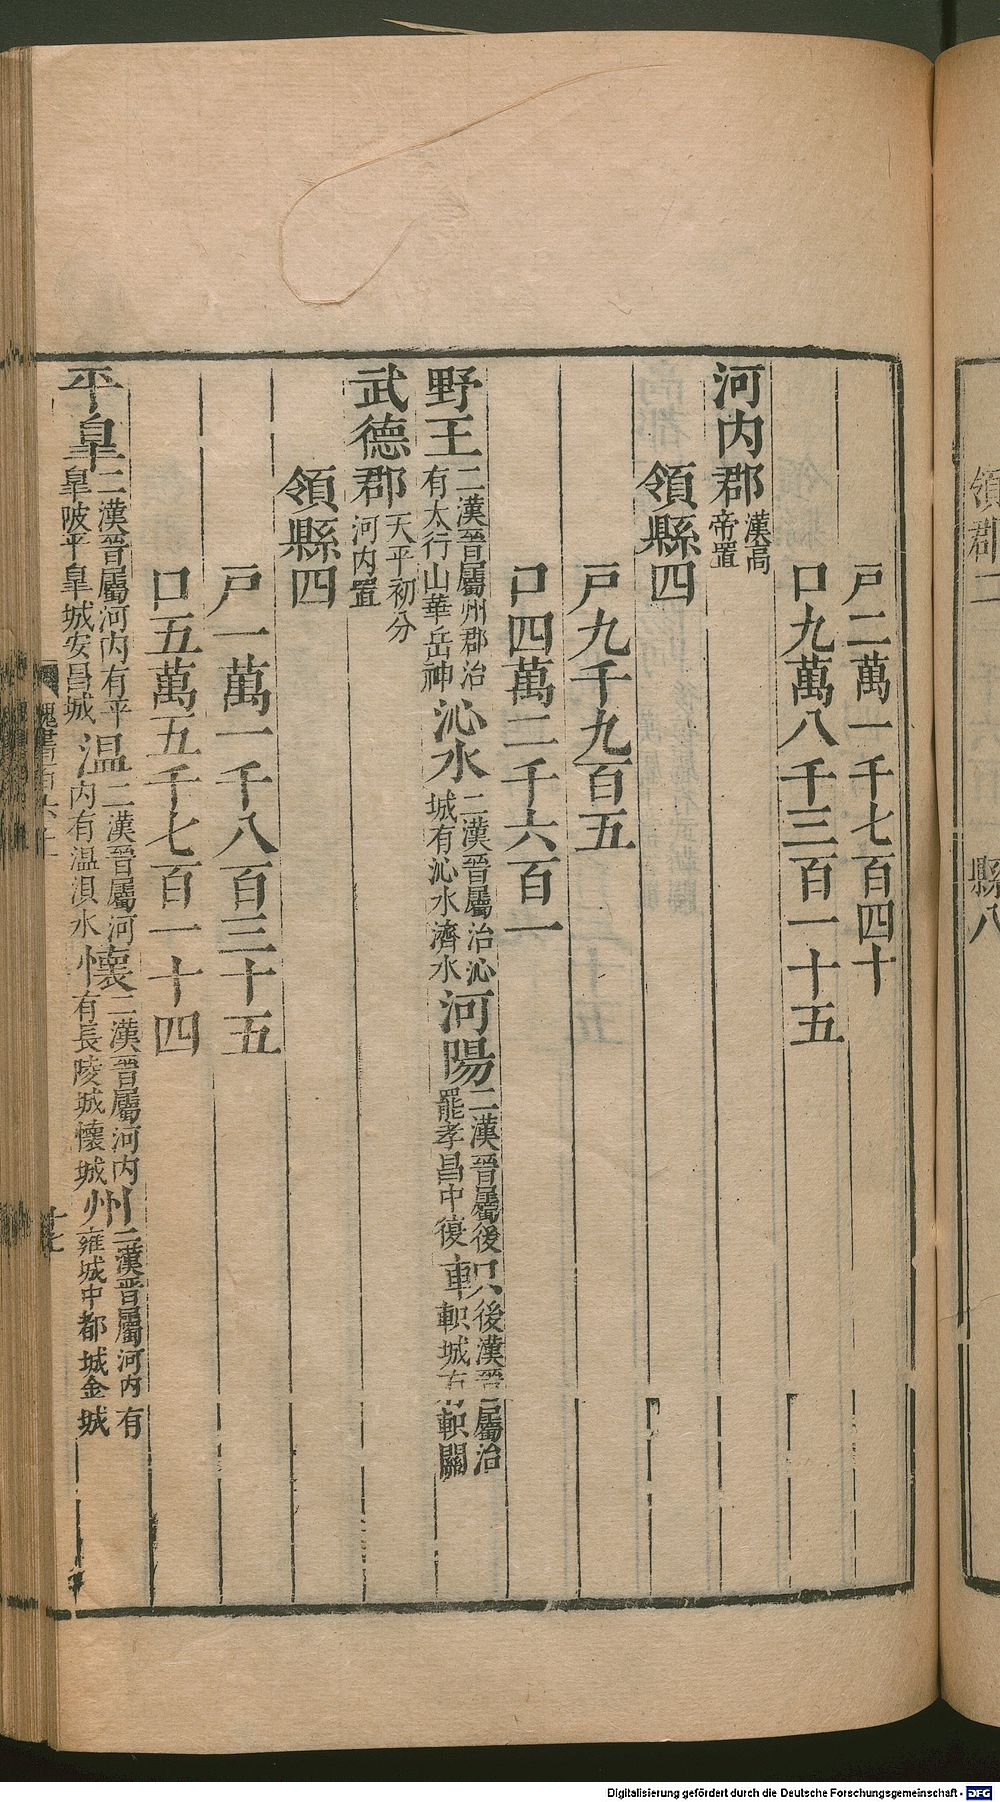 領郡二 縣八
戸二萬一千七百四十
口九萬八千三百一十五
河内郡漢高帝置
領縣四
戸九千九百五
口四萬二千六百一
野王二漢晉屬州郡治有太行山華岳神沁水二漢晉屬治沁城有沁水濟水河陽二漢晉屬後罷孝昌中復軹後漢晉屬治軹城有軹關
武德郡天平初分河内置
領縣四
戸一萬一千八百三十五
口五萬五千七百一十四
平皐二漢晉屬河内有平皐陂平皐城安昌城温二漢晉屬河内有温溴水懷二漢晉屬河内有長陵城懷城州二漢晉屬河内有雍城中都城金城
魏書百六上
十七
Digitalisierung gefördert durch die Deutsche Forschungsgemeinschaft - DFG